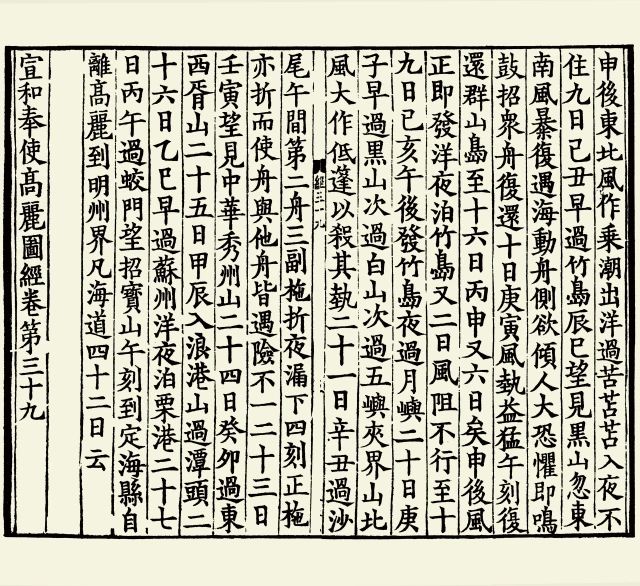 申後東北風作乘潮出洋過苦苫苫入夜不
住九日己丑早過竹島辰巳望見黑山忽東
南風暴復遇海動舟側欲傾人大恐懼即鳴
鼓招衆舟復還十日庚寅風埶益猛午刻復
還群山島至十六日丙申又六日矣申後風
正即發洋夜泊竹島又二日風阻不行至十
九日己亥午後發竹島夜過月嶼二十日庚
子早過黑山次過白山次過五嶼夾界山北
風大作低篷以殺其埶二十一日辛丑過沙
經三十九
尾午間第二舟三副柂折夜漏下四刻正柂
亦折而使舟與他舟皆遇險不一二十三日
壬寅望見中華秀州山二十四日癸卯過東
西胥山二十五日甲辰入浪港山過潭頭二
十六日乙巳早過蘇州洋夜泊栗港二十七
日丙午過蛟門望招寶山午刻到定海縣自
離高麗到明州界凡海道四十二日云
宣和奉使高麗圖經卷第三十九